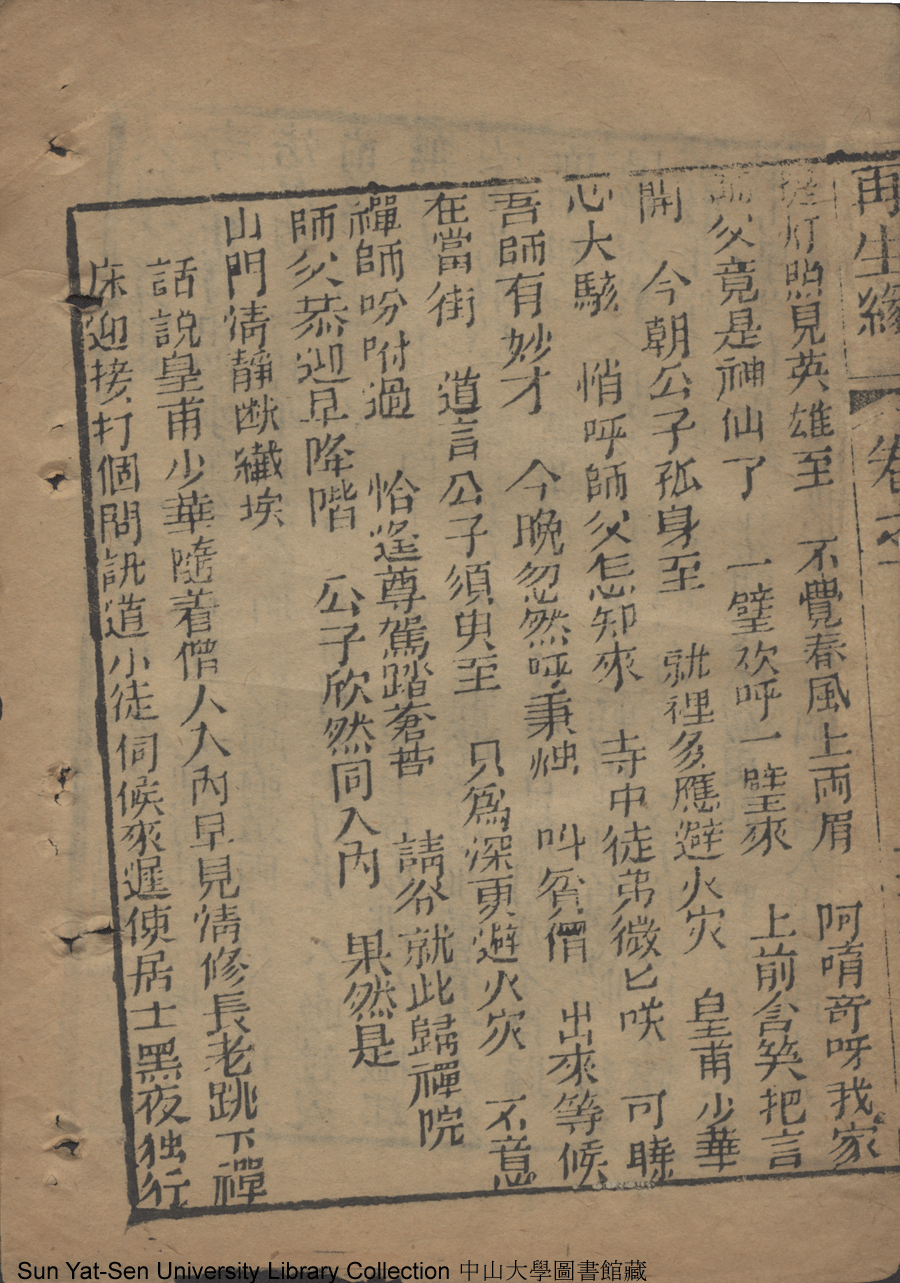 再生緣 卷之
灯照見英雄至 不覺春風上兩眉 阿唷竒呀我家
父竟是神仙了 一壁欢呼一壁來 上前含笑把言
開 今朝公子孤身至 就裡多應避火灾 皇甫少華
心大駭 悄呼師父怎知來 寺中徒弟微匕咲 可曉
吾師有妙才 今晚忽然呼秉烛 叫貧僧 出來等候
在當街 道言公子須臾至 只為深更避火灾 不意
禪師吩咐過 恰逢尊駕踏蒼苔 請爷就此歸禪院
師父恭迎早降階 公子欣然同入內 果然是
山門清靜断纖埃
話說皇甫少華隨着僧人入內早見情修長老跳下禪
床迎接打個問訊道小徒伺候來遲使居士黑夜独行
Sun Yat-Sen University Library Collection 中山大學圖書館藏